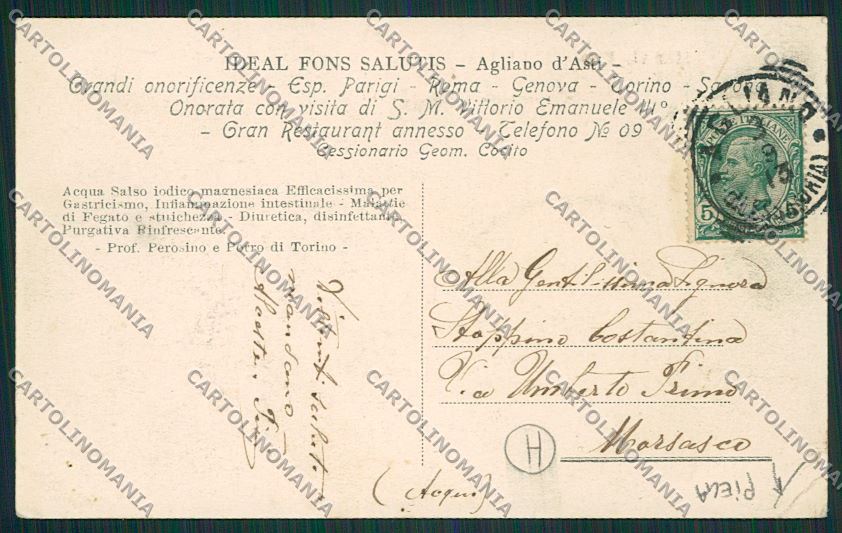 IDEAL FONS SALUTIS – Agliano d'Asti –
Grandi onorificenze - Esp. Parigi - Roma - Genova - Torino - Savona
Onorata con visita di S. M. Vittorio Emanuele III°
– Gran Restaurant annesso – Telefono № 09
Cessionario Geom. Cocito
Acqua Salso iodico magnesiaca Efficacissima per
Gastricismo, Infiammazione intestinale - Malattie
di Fegato e stuichezza - Diuretica, disinfettante
Purgativa Rinfrescante
- Prof. Perosino e Porro di Torino -
POSTE ITALIANE
5
Alla Gentilissima Signora
Stoppino Costantina
Via Umberto Primo
Morsasco
(Acqui)
mandano
H
PIEGA
CARTOLINOMANIA